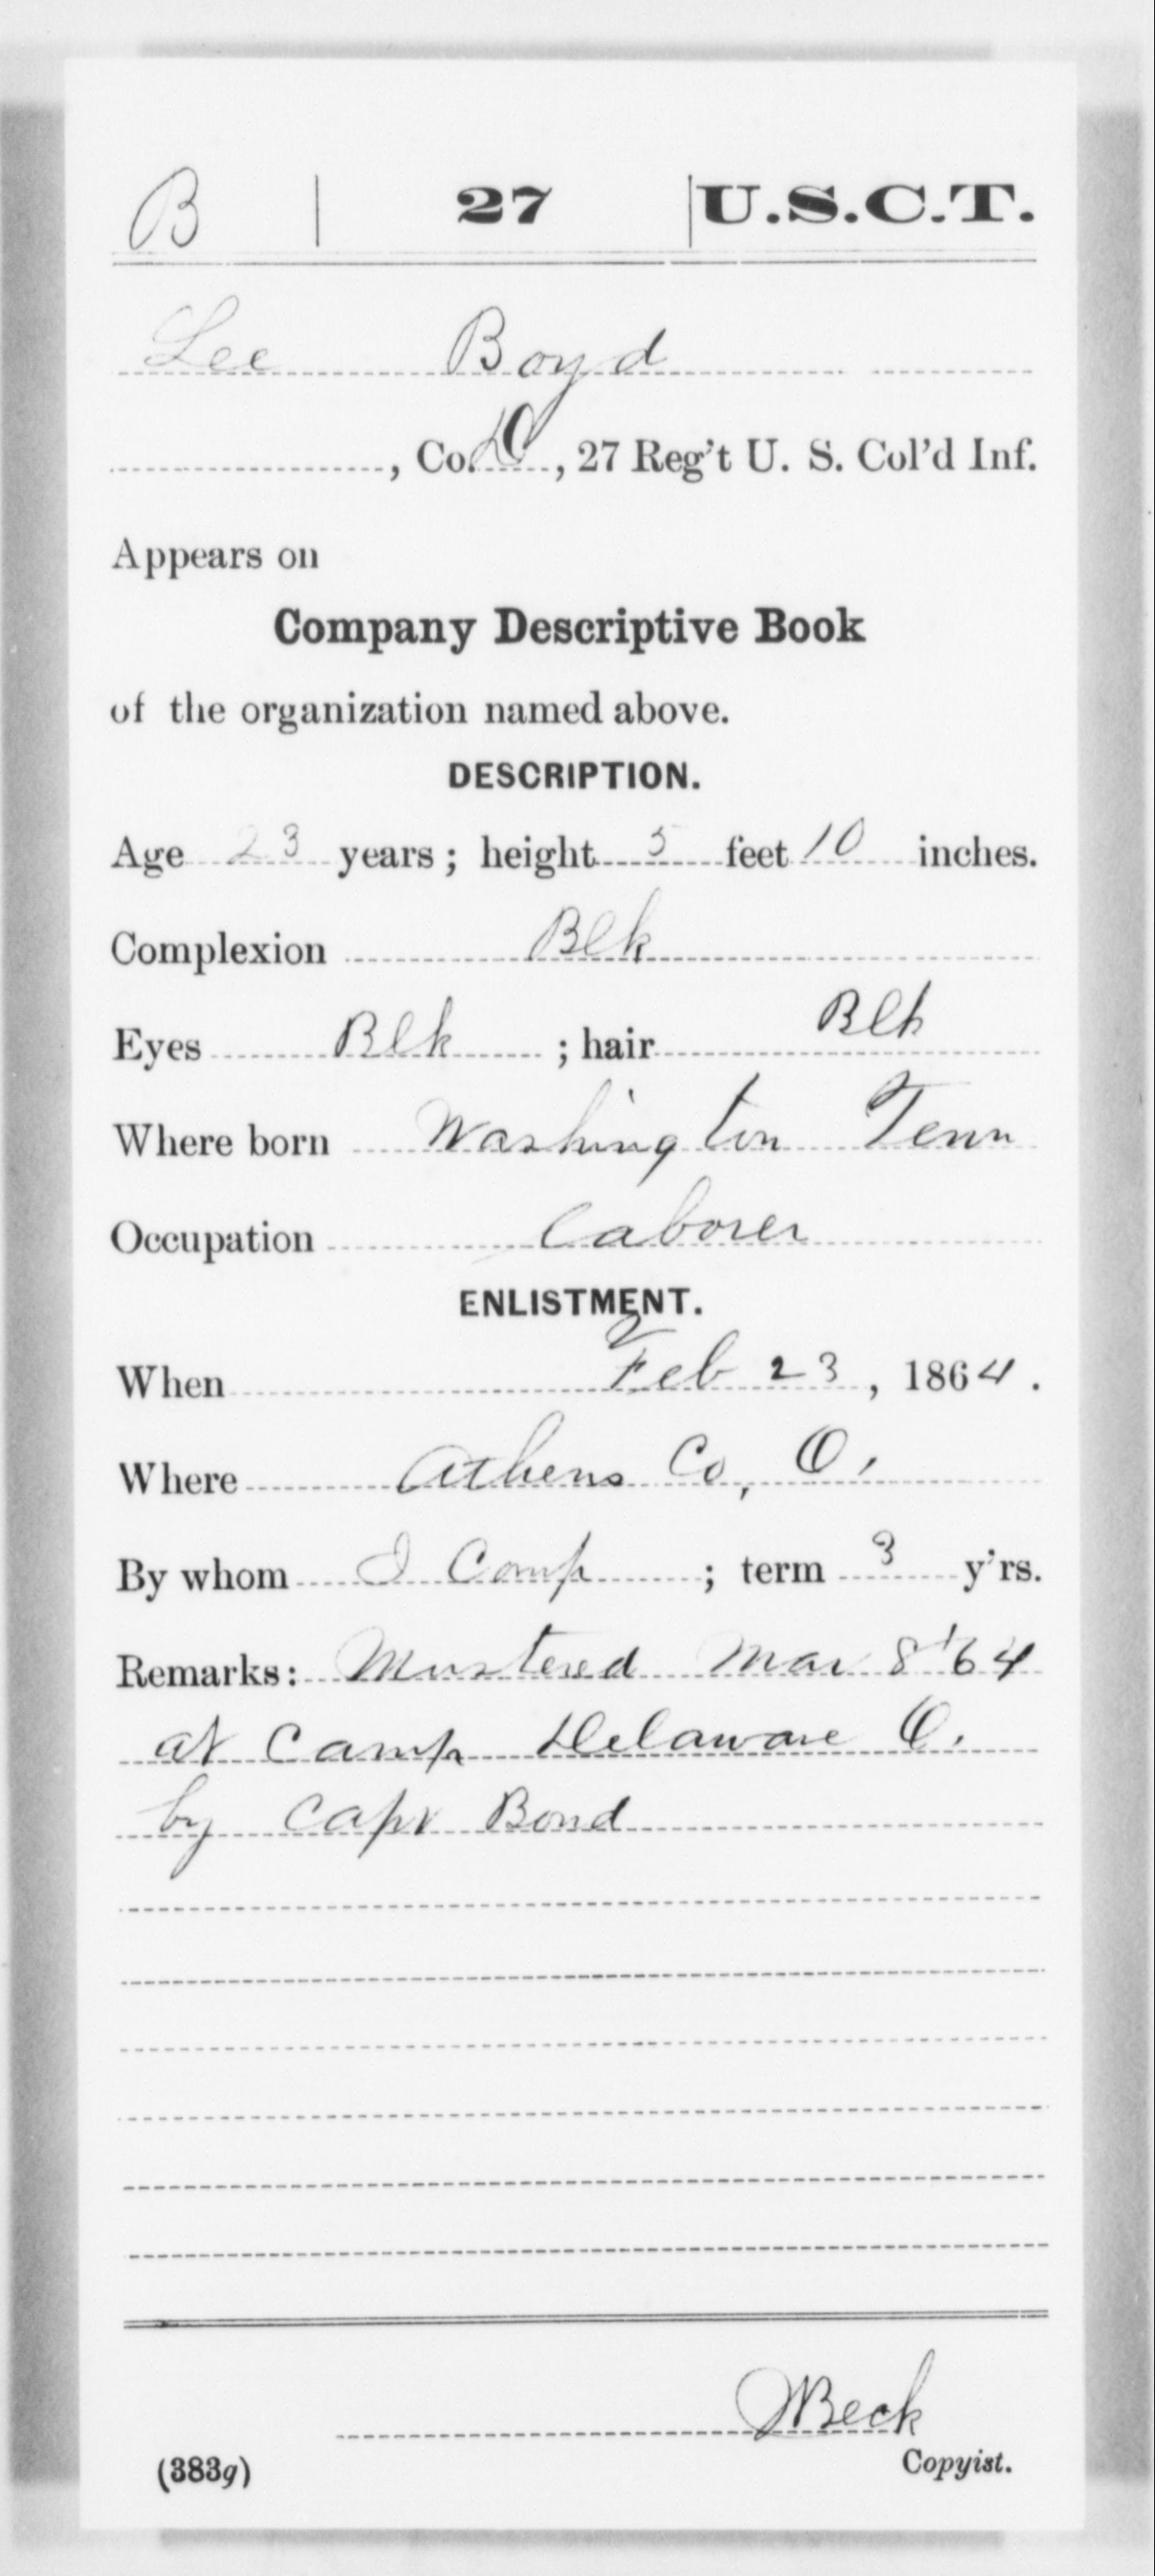 B | 27 | U.S.C.T.
Lee Boyd
, Co. D, 27 Reg't U. S. Col'd Inf.
Appears on
Company Descriptive Book
of the organization named above.
DESCRIPTION.
Age 23 years; height 5 feet 10 inches.
Complexion Blk
Eyes Blk; hair Blk
Where born Washington Tenn
Occupation Laborer
ENLISTMENT.
When Feb 23, 1864.
Where Athens Co, O.
By whom I Comp; term 3 y'rs.
Remarks: Mustered Mar 8 '64
at Camp Delaware O.
by Capt Bond
Beck
(383g) Copyist.